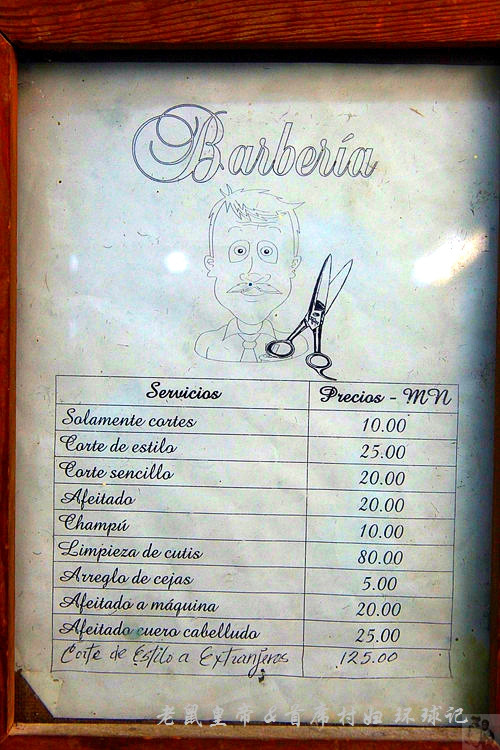 Barbería
Servicios Precios - MN
Solamente cortes 10.00
Corte de estilo 25.00
Corte sencillo 20.00
Afeitado 20.00
Champú 10.00
Limpieza de cutis 80.00
Arreglo de cejas 5.00
Afeitado a máquina 20.00
Afeitado cuero cabelludo 25.00
Corte de Estilo a Extranjeros 125.00
老鼠皇帝&首席村妇环球记